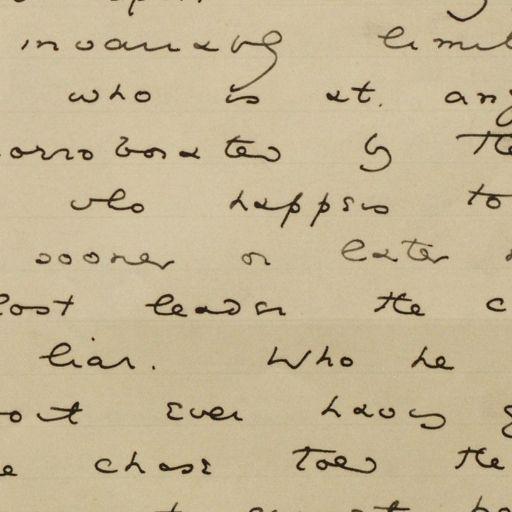 invariably limit
who is at any
corroborated by the
who happens to
sooner or later
lost leader the c
liar. Who he
out ever having g
e chase told the